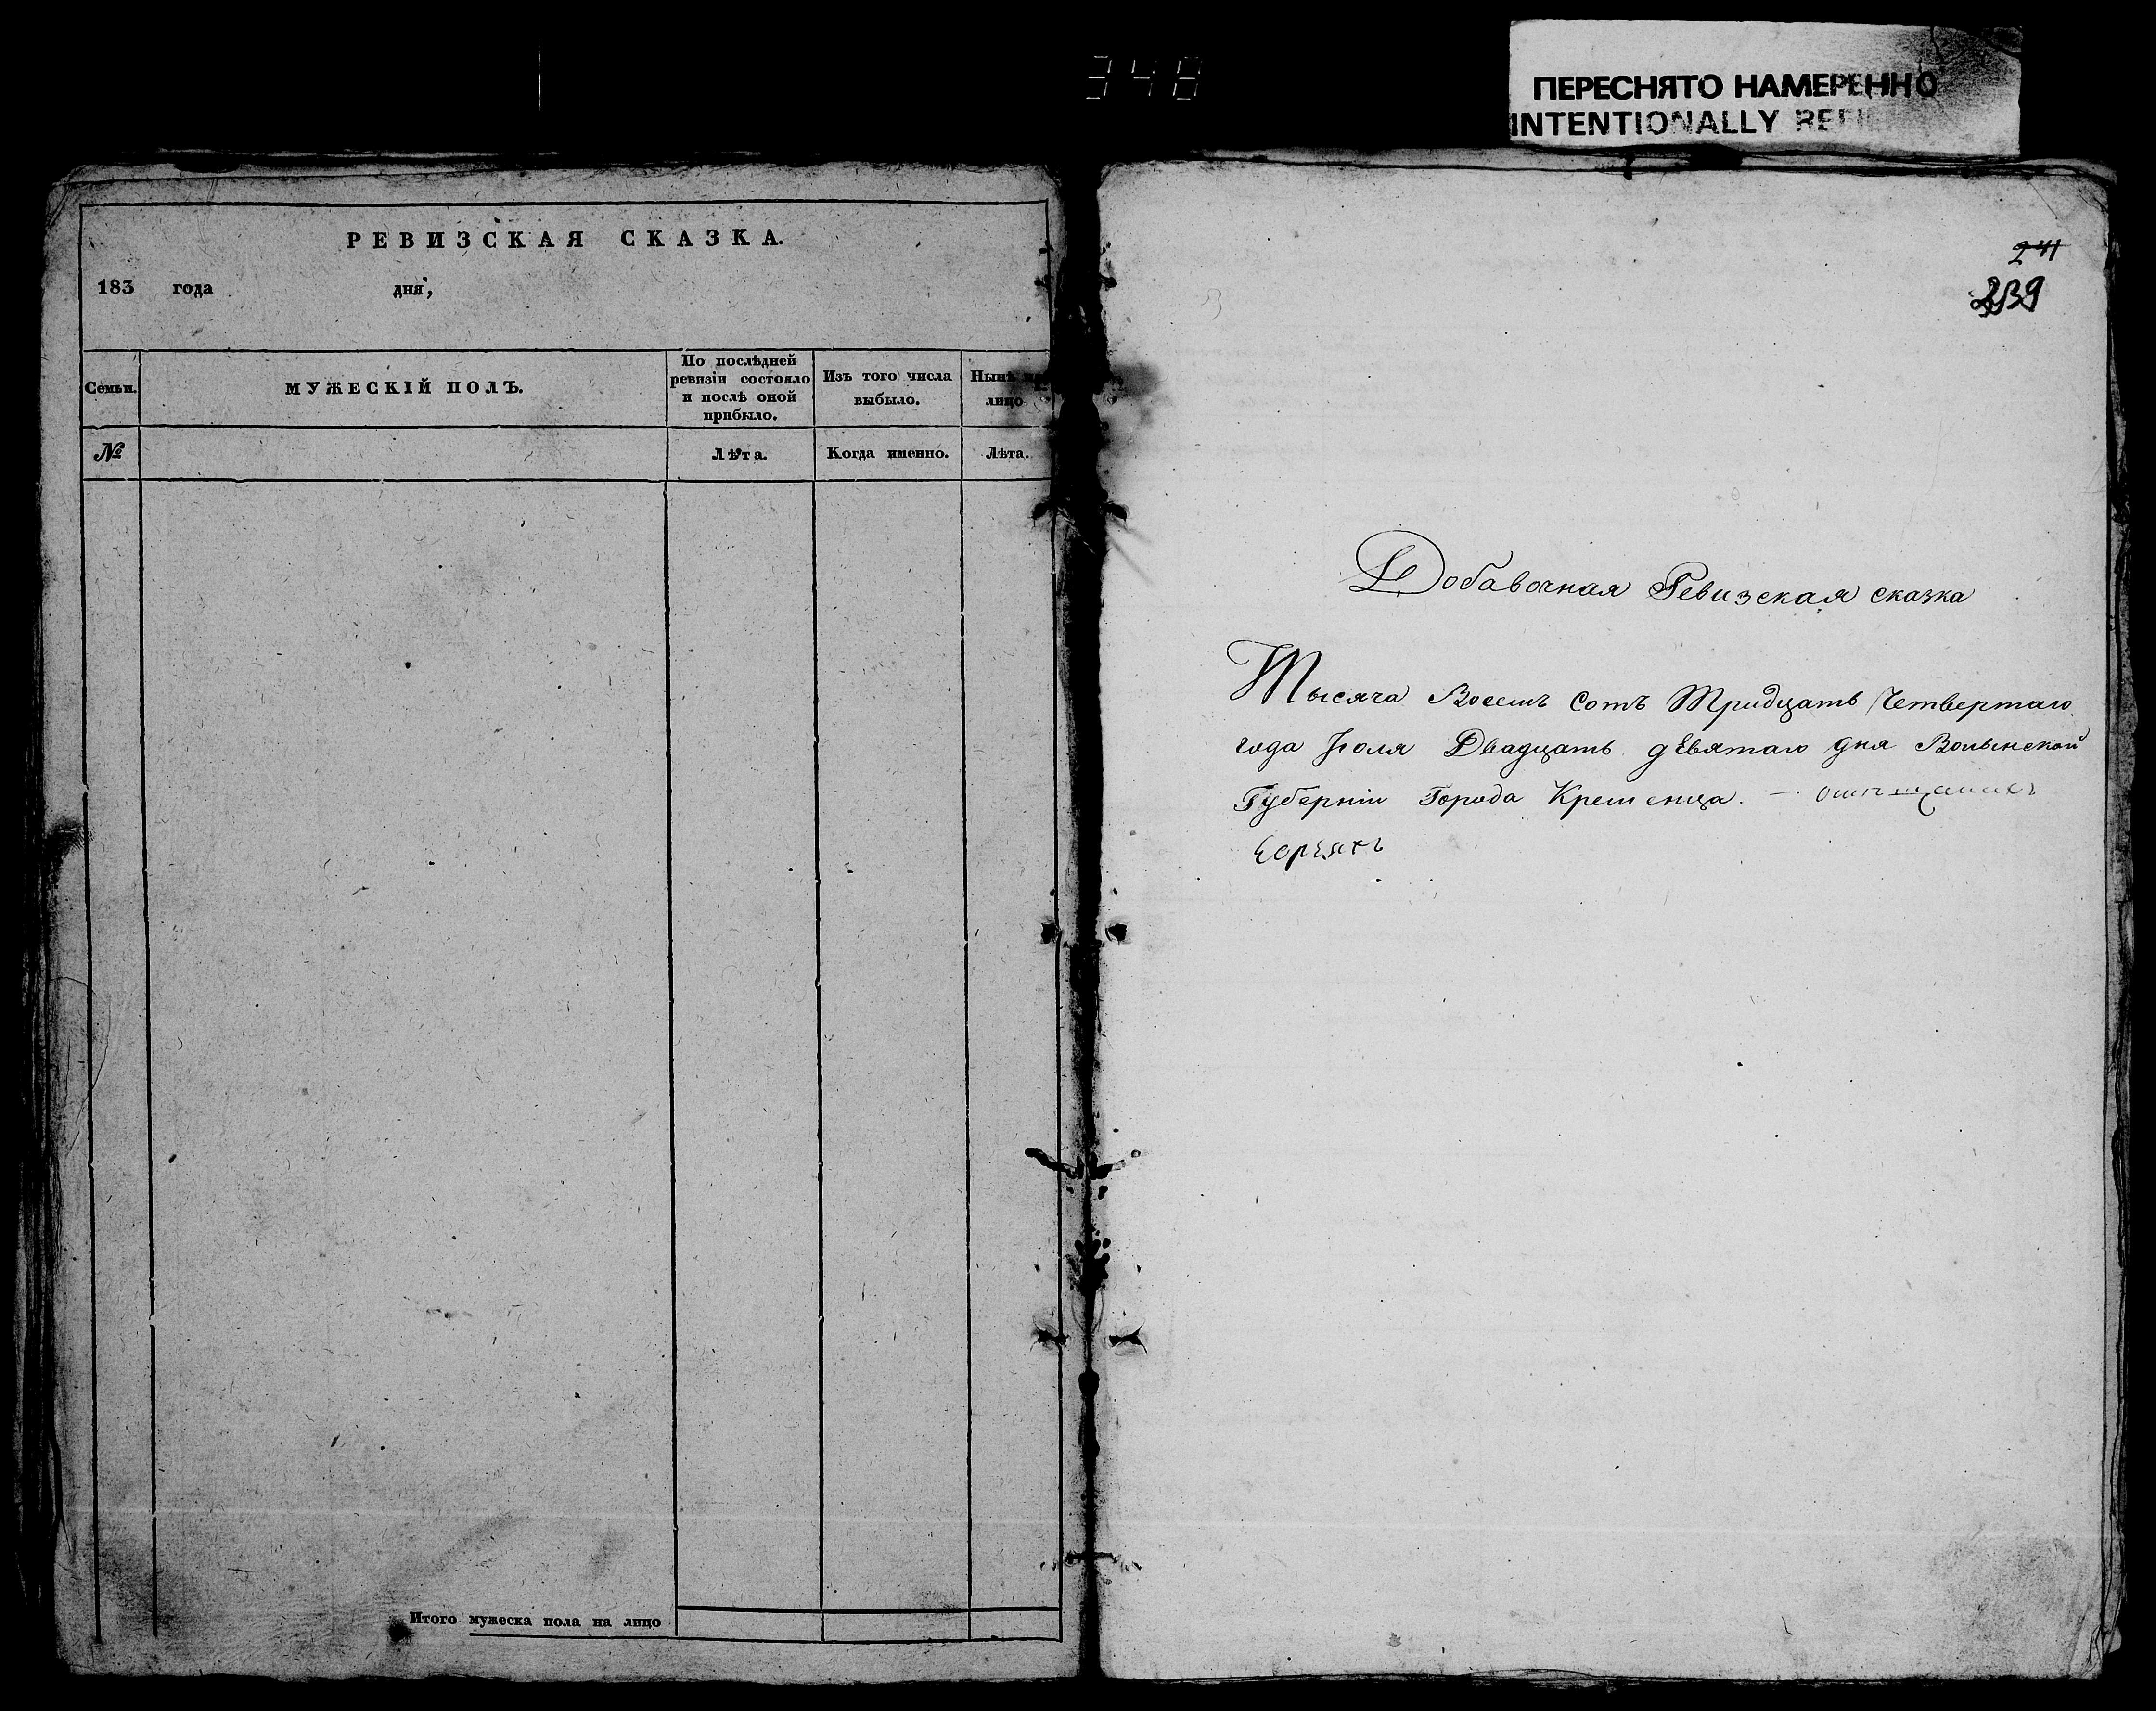 348
ПЕРЕСНЯТО НАМЕРЕННО
INTENTIONALLY
РЕВИЗСКАЯ СКАЗКА.
183 года дня,
Семьи.
МУЖЕСКІЙ ПОЛЪ.
По послѣдней
ревизіи состояло
и послѣ оной
прибыло.
Изъ того числа
выбыло.
Нынѣ на
лицо
№
Лѣта.
Когда именно.
Лѣта.
Итого мужеска пола на лицо
241
239
Добавочная Ревизская сказка
Тысяча Восемъ Сотъ Тридцать Четвертаго
года Іюля Двадцать девятаго дня Волынской
Губерніи Города Кременца. —
Евреяхъ